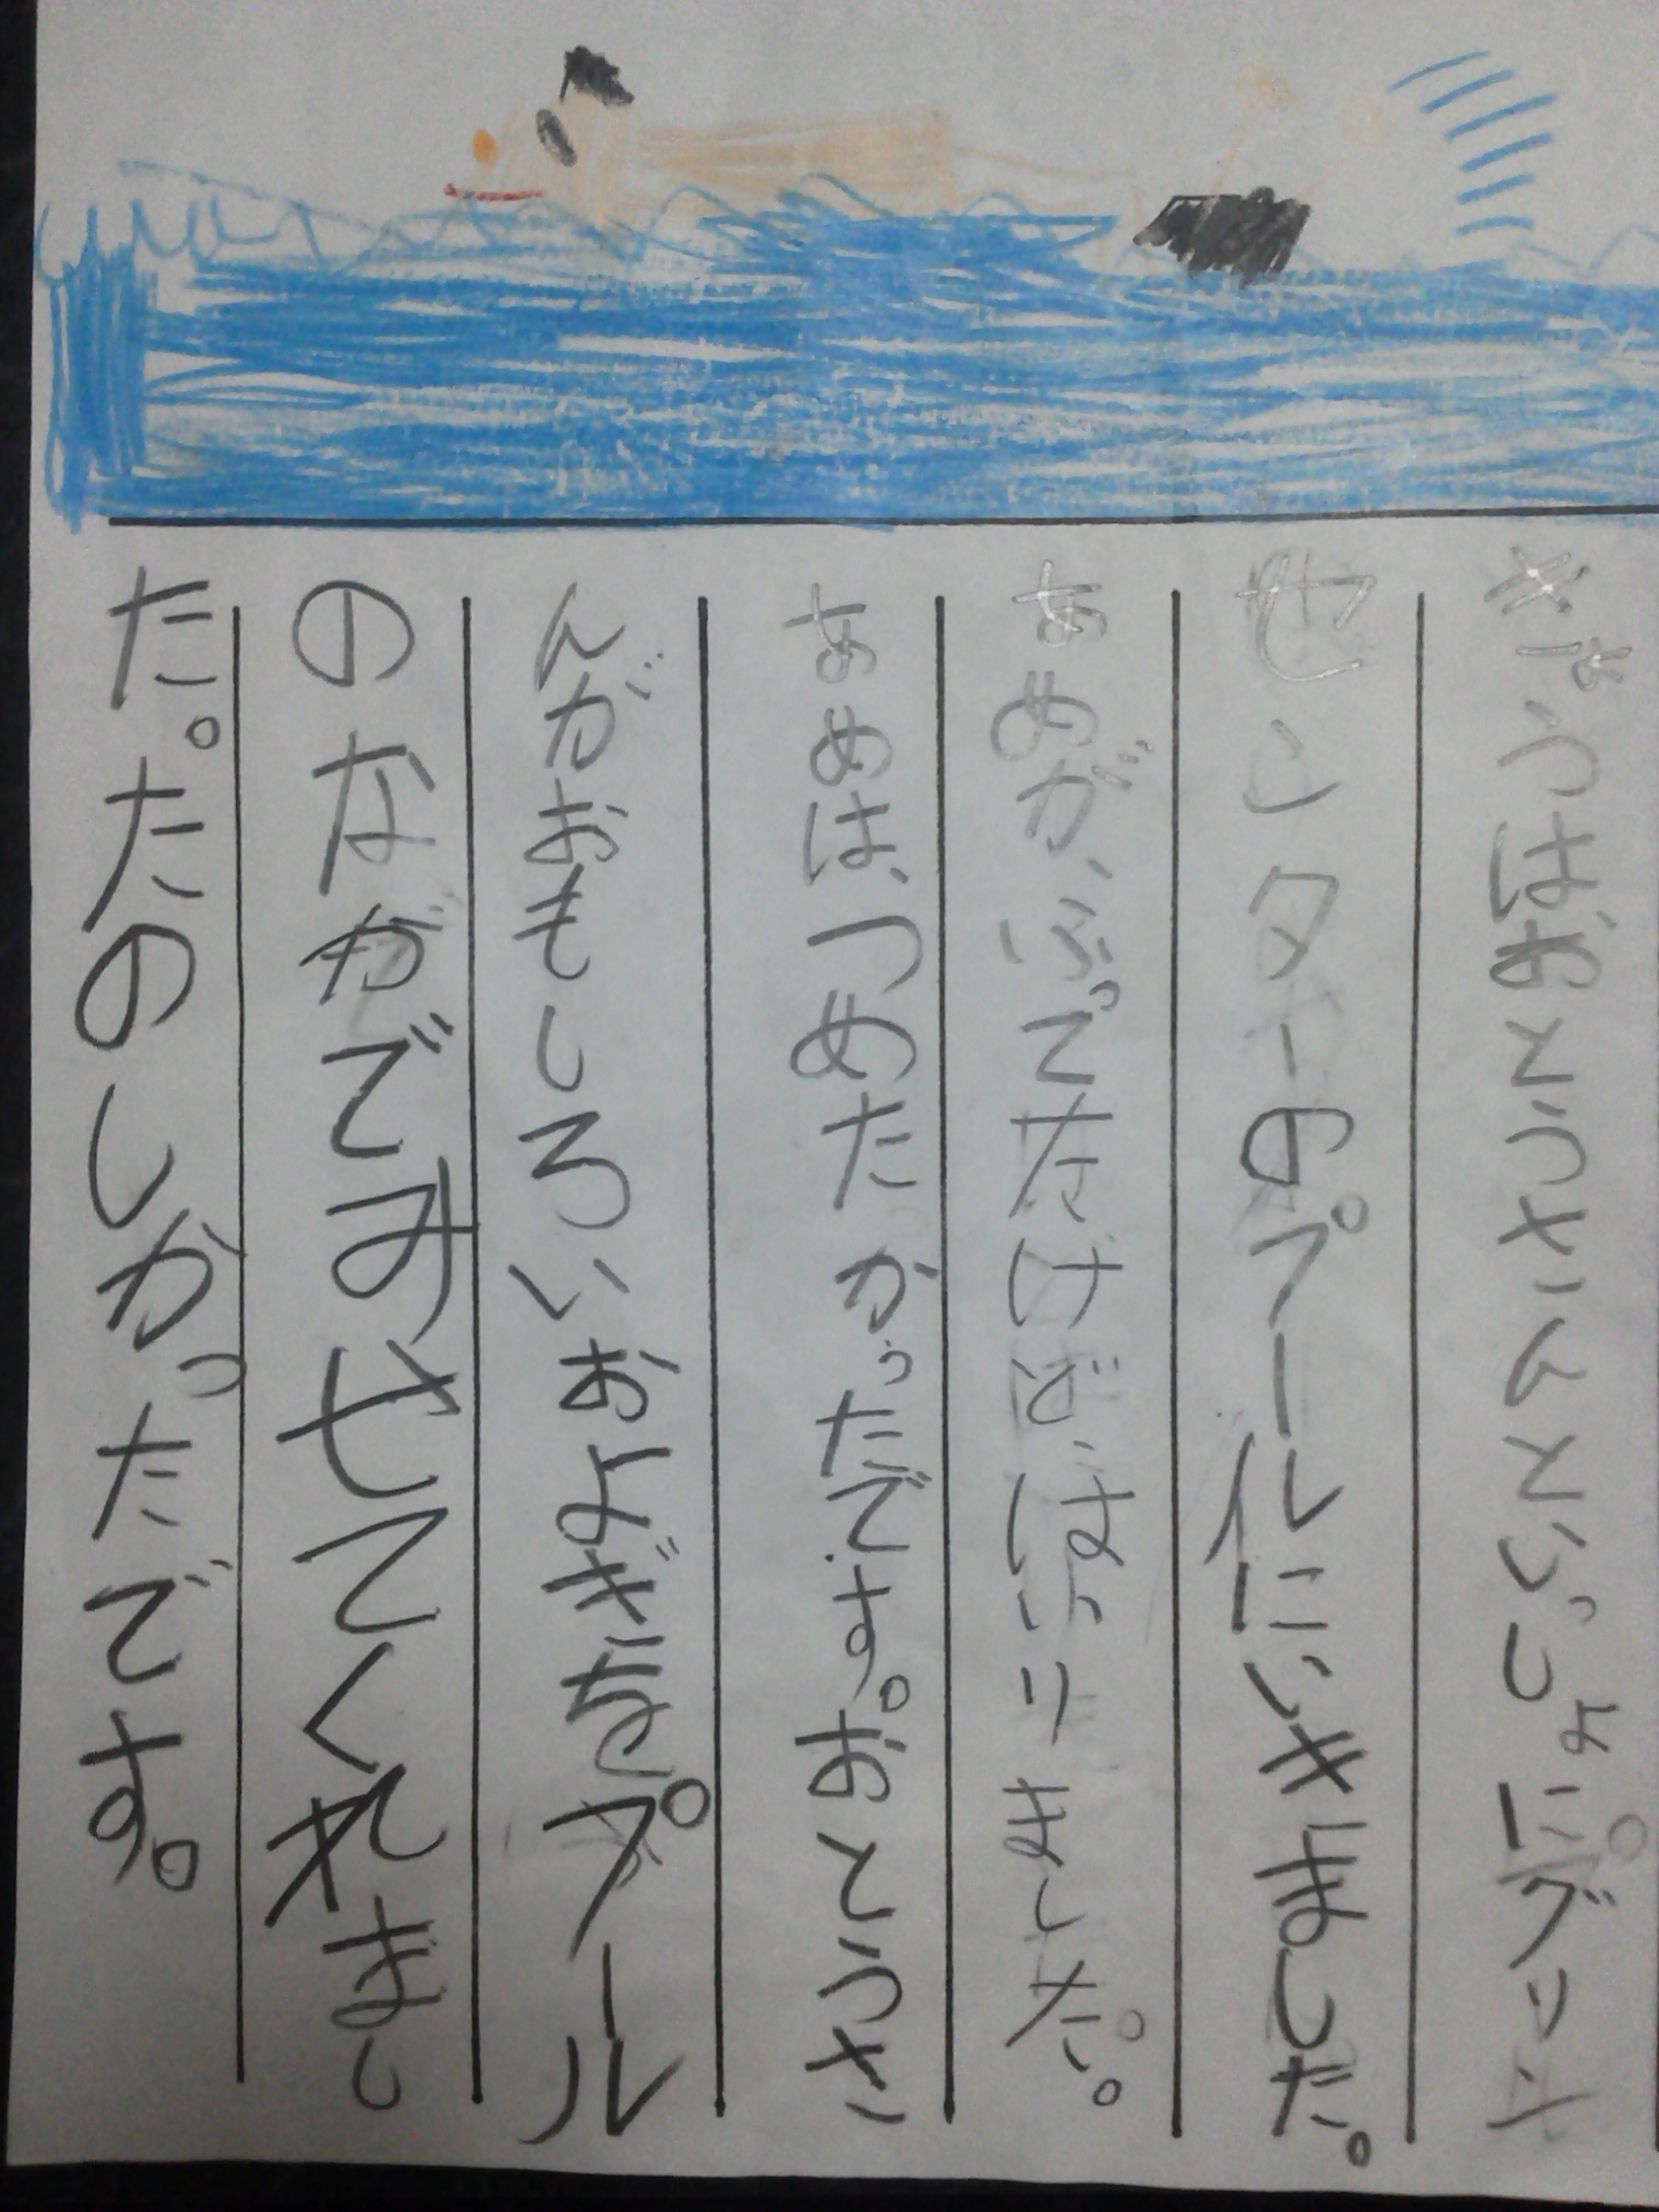 きょうはおとうさんといっしょにグリーン
センターのプールにいきました。
あめが、ふってたけどはいりました。
あめは、つめたかったです。おとうさ
んがおもしろいおよぎをプール
のなかでみせてくれまし
た。たのしかったです。